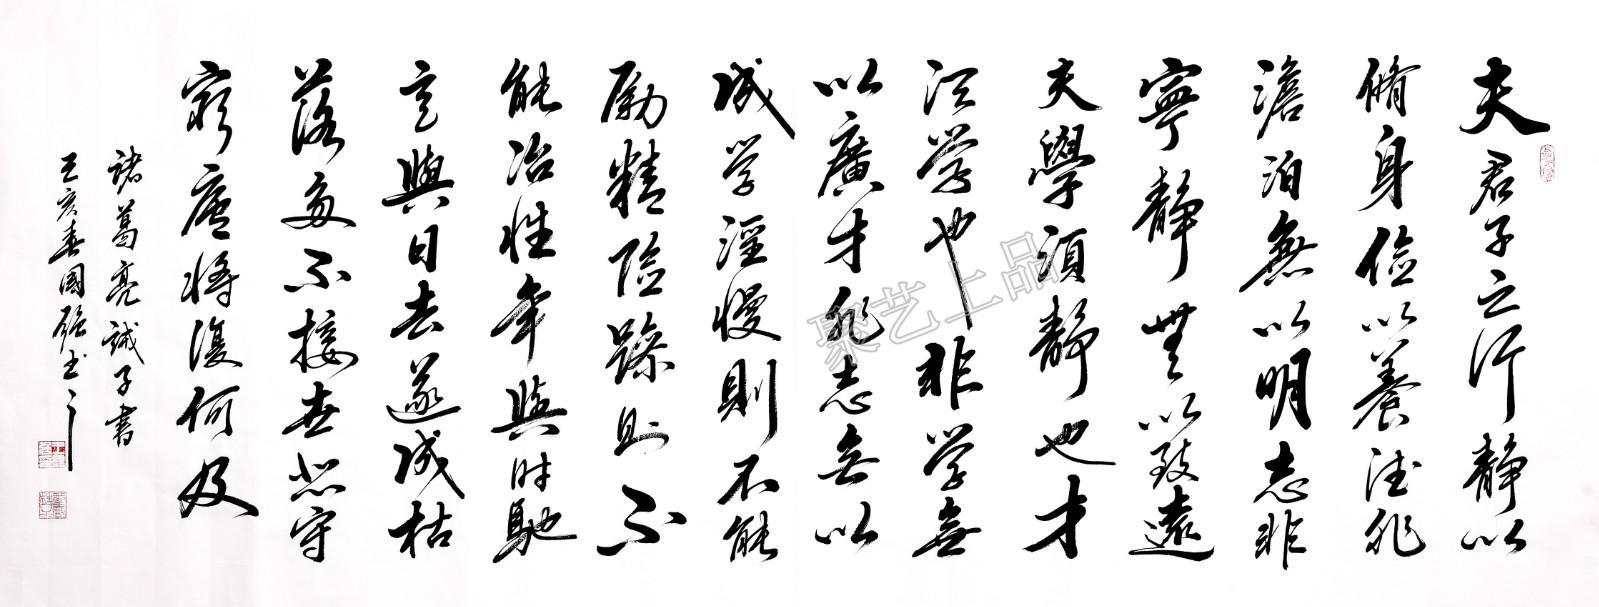 夫君子之行静以
脩身儉以養德非
澹泊無以明志非
寧静無以致遠
夫學須静也才
須学也非学無
以廣才非志無以
成学淫慢則不能
励精險躁則不
能冶性年與時馳
意與日去遂成枯
落多不接世悲守
窮廬將復何及
諸葛亮誡子書
國強书
聚艺上品